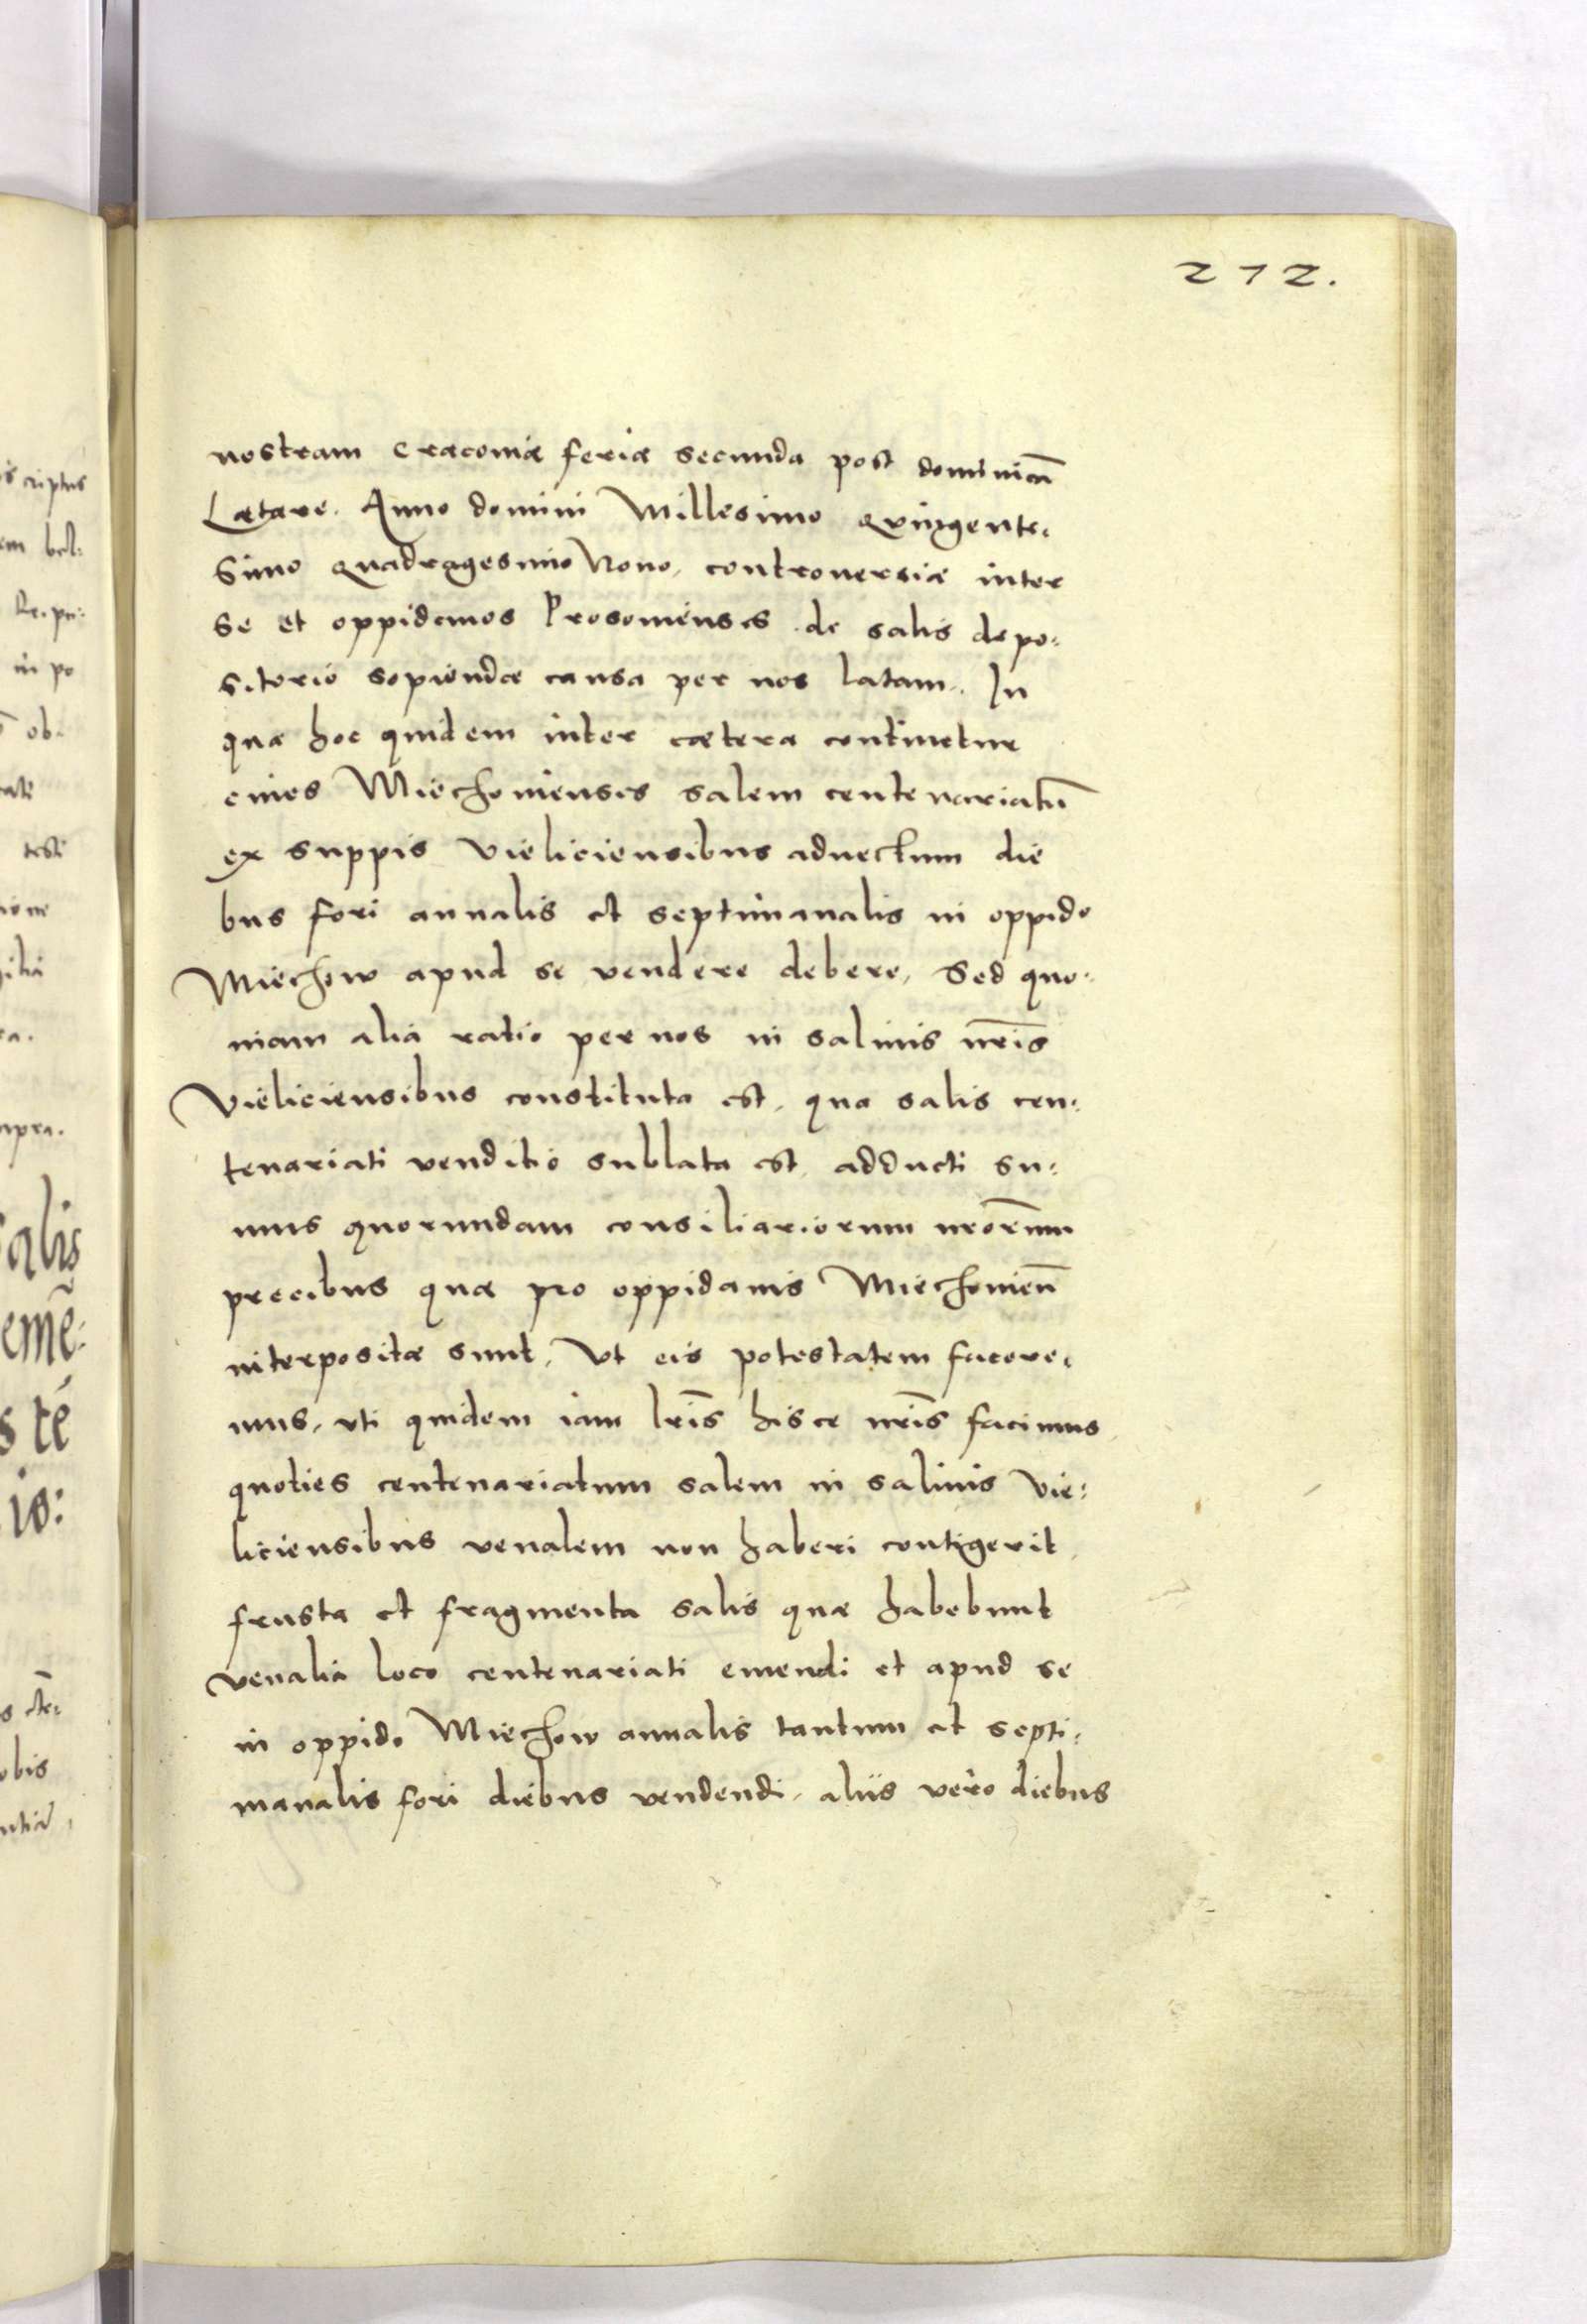 212.
nostram Cracoviæ feria secunda post dominicā
Lætare. Anno domini Millesimo Quingente:
simo Quadragesimo Nono, controversiæ inter
se et oppidanos Prosovienses de salis depo:
sitorio sopiendæ causa per nos latam. In
qua hoc quidem inter cætera continetur
cives Miechovienses salem centenariatū
ex suppis Vieliciensibus advectum die
bus fori annalis et septimanalis in oppido
Miechow apud se vendere debere, Sed quo:
niam alia ratio per nos in salinis nr̄is
Vieliciensibus constituta est, qua salis cen:
tenariati venditio sublata est, adducti su:
mus quorundam consiliariorum nr̄orum
precibus quæ pro oppidanis Miechovieñ
interpositæ sunt, Ut eis potestatem facere:
mus, uti quidem iam lr̄is hisce nr̄is facimus
quoties centenariatum salem in salinis Vie:
liciensibus venalem non haberi contigerit,
frusta et fragmenta salis quæ habebunt
venalia loco centenariati emendi et apud se
in oppido Miechow annalis tantum et septi:
manalis fori diebus vendendi, aliis vero diebus